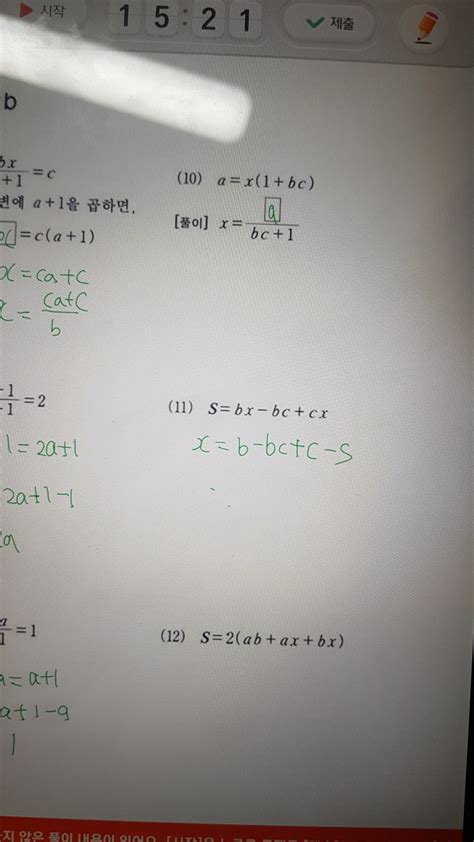 시작 15:21 제출
b
bx/+1=c
변에 a+1을 곱하면,
=c(a+1)
x=ca+c
x=ca+c/b
(10) a=x(1+bc)
[풀이] x=a/bc+1
-1/-1=2
1=2a+1
2a+1-1
(11) S=bx-bc+cx
x=b-bc+c-S
a/1=1
a=a+1
a+1-a
1
(12) S=2(ab+ax+bx)
않은 풀이 내용이 있어요.